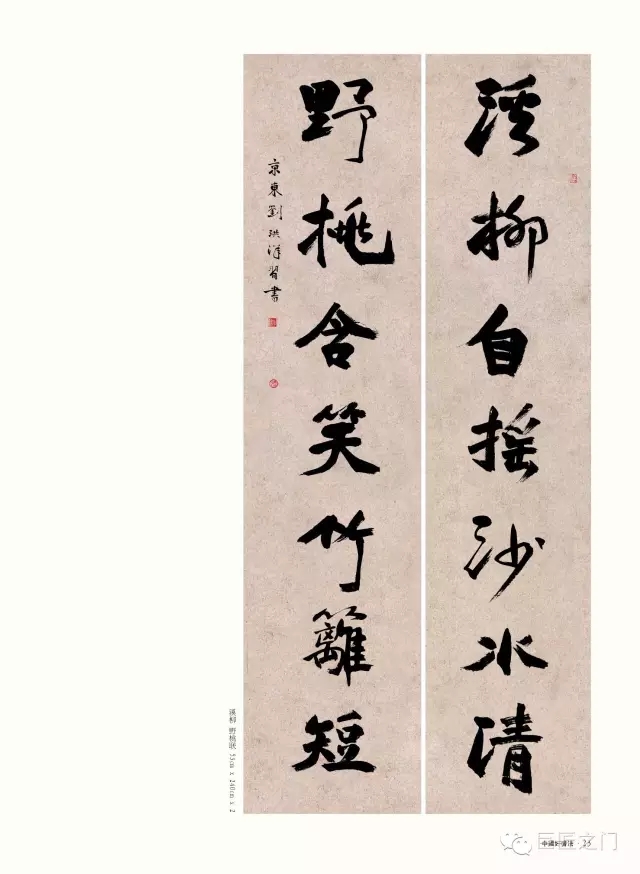 溪柳自摇沙水清
野桃含笑竹籬短
京東劉洪洋習書
溪柳 野桃联 53cm x 240cm x 2
中國好書法 · 25
巨匠之门